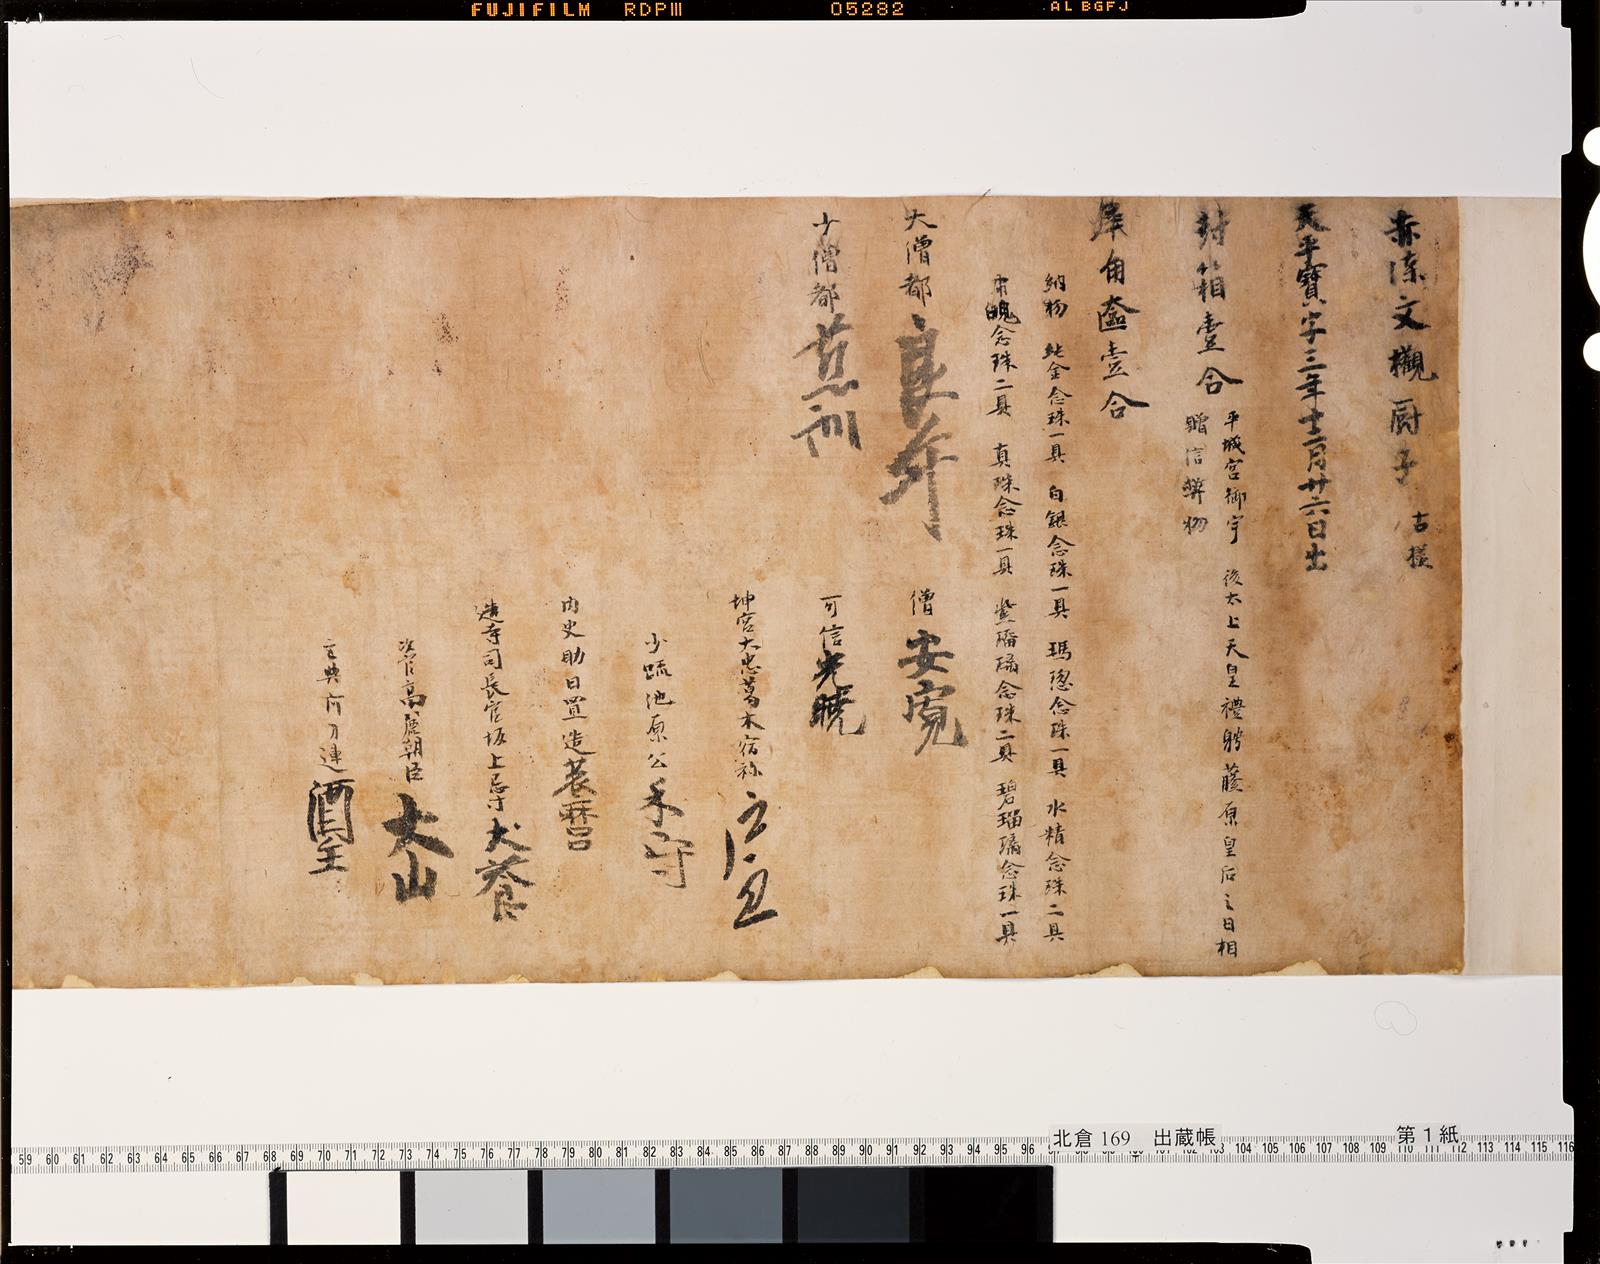 FUJIFILM RDPIII 05282 AL BGFJ
赤漆文欟厨子 古様
天平寶字三年十二月廿六日出
封箱壹合 平城宮御宇 後太上天皇禮聘藤原皇后之日相
贈信幣物
犀角奩壹合
納物 純金念珠一具 白銀念珠一具 瑪瑙念珠一具 水精念珠二具
琥魄念珠二具 真珠念珠一具 紫瑠璃念珠二具 碧瑠璃念珠一具
大僧都 良弁 僧 安寛
少僧都 慈訓 可信 光曉
坤宮大忠葛木宿祢
少疏池原公 禾守
内史助日置造 蓑麿
造寺司長官坂上忌寸 犬養
次官高麗朝臣 大山
主典阿刀連 酒主
北倉 169 出蔵帳
第 1 紙
59 60 61 62 63 64 65 66 67 68 69 70 71 72 73 74 75 76 77 78 79 80 81 82 83 84 85 86 87 88 89 90 91 92 93 94 95 96 104 105 106 107 108 109 110 111 112 113 114 115 116